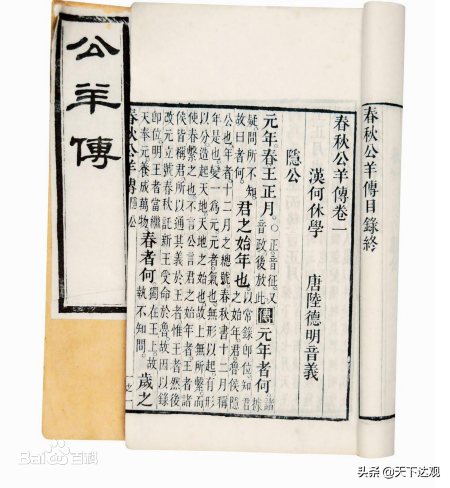 公羊傳
春秋公羊傳目錄終
春秋公羊傳卷一
漢何休學 唐陸德明音義
隱公
元年春王正月○正音征又音政後放此傳元年者何諸據
疑問所不知故曰者何君之始年也以常錄即位知君之始年君魯侯隱
公也年者十二月之總號春秋書十二月稱
年是也變一為元元者氣也無形以起有形
以分造起天地天地之始也故上無所繫而
使春繫之也不言公言君之始年者王者諸
侯皆稱君所以通其義於王者惟王者然後
改元立號春秋託新王受命於魯故因以錄
即位明王者當繼天奉元養成萬物春者何獨在王上故執不知問歲之
春秋公羊傳 隱公
Bai百科
头条 @天下达观